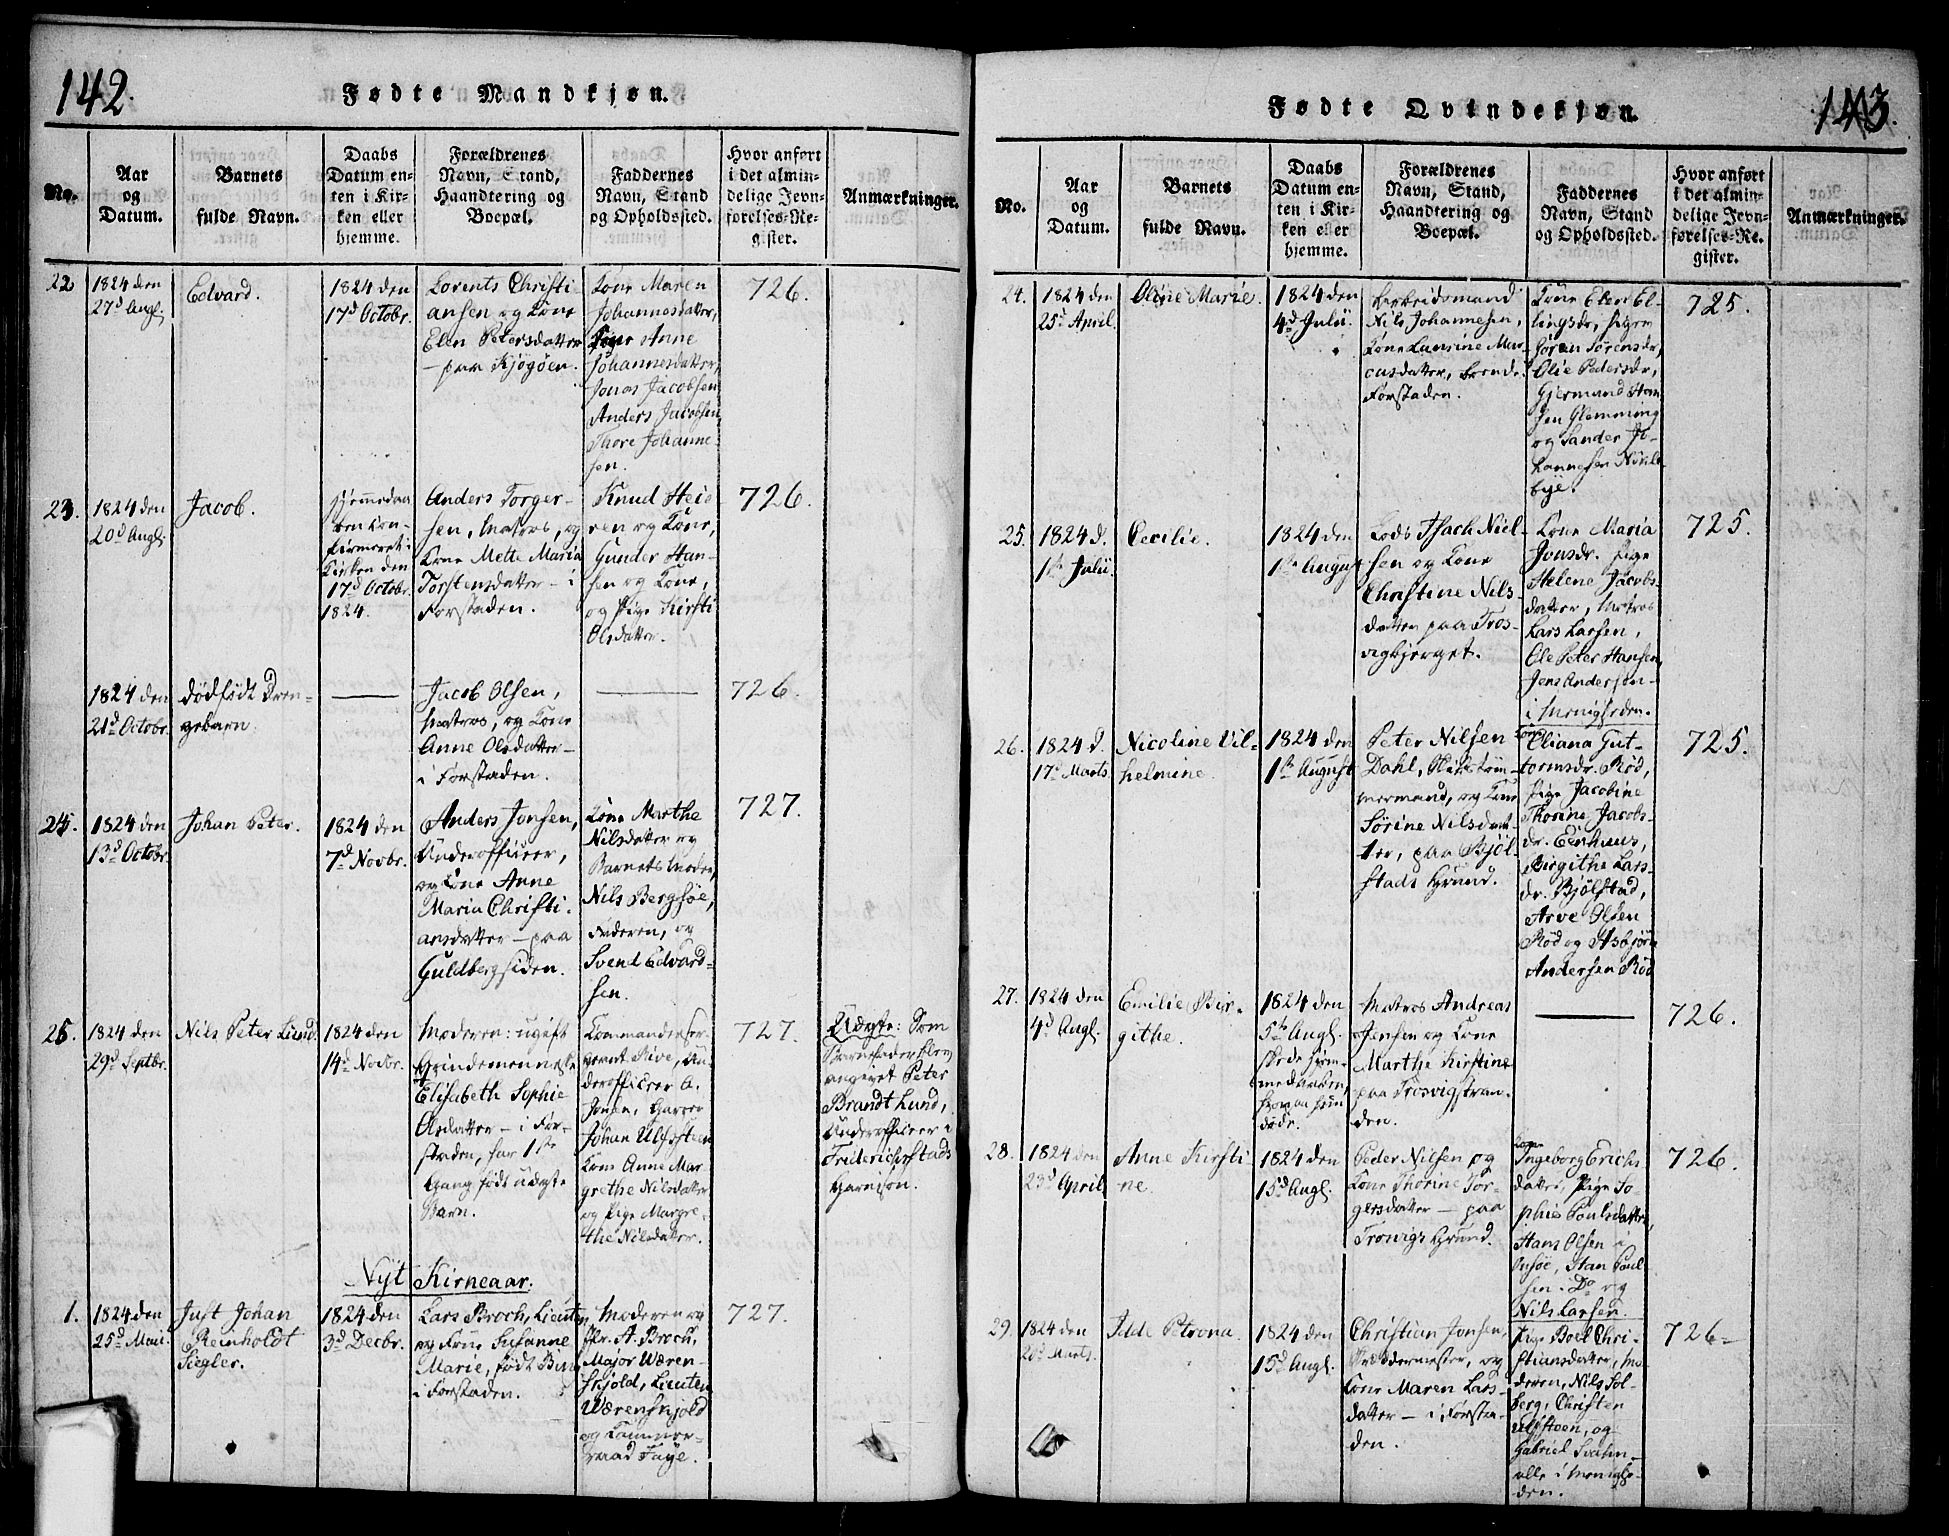 142.
Fødte Mandkjøn.
No.
Aar
og
Datum.
Barnets
fulde Navn.
Daabs
Datum en-
ten i Kir-
ken eller
hjemme.
Forældrenes
Navn, Stand,
Haandtering og
Boepæl.
Faddernes
Navn, Stand
og Opholdssted.
Hvor anført
i det almin-
delige Jevn-
førelses-Re-
gister.
Anmærkninger.
22
1824 den
27d Augl.
Edvard.
1824 den
17d Octobr.
Lorents Christi-
ansen og Kone
Elen Petersdatter
- paa Kjøgøen.
Kone Maren
Johannesdatter,
Pige Anne
Johannesdatter,
Jonas Jacobsen
Anders Jacobsen,
Thore Johanne-
sen.
726.
23.
1824 den
20d Augl.
Jacob.
hjemmedøbt
Kirken den
17d Octobr.
1824.
Anders Torger-
sen, Matros, og
Kone Mette Maria
Torstensdatter - i
Forstaden.
Knud Heie
ren og Kone,
Gunder Han-
sen og Kone,
og Pige Kirsti
Olsdatter.
726.
1824 den
21d Octobr.
dødfødt Dren-
gebarn.
Jacob Olsen,
Matros, og Kone
Anne Olsdatter -
i Forstaden.
726.
24.
1824 den
13d Octobr.
Johan Peter.
1824 den
7d Novbr.
Anders Jonsen,
Underofficeer,
og Kone Anne
Maria Christi-
ansdatter - paa
Guldbergsiden.
Kone Marthe
Nilsdatter og
Barnets Moder,
Nils Bergsøe,
Faderen, og
Svend Edvard-
sen.
727.
25.
1824 den
29d Septbr.
Nils Peter Lund.
1824 den
14d Novbr.
Moderen: ugift
Qvindemenneske
Elisabeth Sophie
Olsdatter - i For-
staden, har 1ste
Gang født uægte
Barn.
derofficeer A.
Jonsen,
Johan Ulfsteen
Kone Anne Mar-
grethe Nilsdatter
og Pige Margre-
the Nilsdatter.
727.
Uægte: Som
Barnefader blev
angivet Peter
Brandt Lund,
Underofficeer i
Friderichsstads
Garnison.
Nyt Kirkeaar.
1.
1824 den
25d Maii.
Just Johan
Reinholdt
Siegler.
1824 den
3d Decbr.
Lars Broch, Lieutn.
og Kone Susanne
Marie, født Bing
i Forstaden.
Moderen og
Hr. A. Broch,
Major Wæren-
skjold, Lieuten.
Wærenskjold
og Kammer-
raad Faye.
727.
143.
Fødte Qvindekjøn.
No.
Aar
og
Datum.
Barnets
fulde Navn.
Daabs
Datum en-
ten i Kir-
ken eller
hjemme.
Forældrenes
Navn, Stand,
Haandtering og
Boepæl.
Faddernes
Navn, Stand
og Opholdssted.
Hvor anført
i det almin-
delige Jevn-
førelses-Re-
gister.
Anmærkninger.
24.
1824 den
25d April
Oline Marie.
1824 den
4d Julii.
Arbeidsmand
Nils Johannesen,
Kone Laurine Mar-
cusdatter,
Forstaden.
Kone Elen El-
lingsdr, Pigen
Jøran Sørensdr,
Olie Pedersdr,
Gjermund Han-
sen Glemming
og Sander Jo-
hannesen Nable-
bye.
725.
25.
1824 d.
1ste Julii.
Cecilie.
1824 den
1ste August
Lods Isach Niel-
sen og Kone
Christine Nils-
datter paa Tros-
vigbjerget.
Kone Maria
Jonsdr. Pige
Helene Jacobs-
datter, Matros
Lars Larsen,
Ole Peter Hansen,
Jens Andersen -
i Menigheden.
725.
26.
1824 d.
17d Marts
Nicoline Vil-
helmine.
1824 den
1ste August
Peter Nilsen
Dahl, Skibstøm-
mermand, og Kone
Sørine Nilsdat-
ter, paa Bjøl-
stads Grund.
Kone
Eliana Gut-
tormsdr. Rød,
Pige Jacobine
Thorine Jacobs-
dr. Eenhuus,
Birgithe Lars-
dr. Bjølstad,
Arve Olsen
Rød og Asbjørn
Andersen Rød
725.
27.
1824 den
4d Augl.
Emilie Bir-
githe.
1824 den
5te Augl.
skede hjem-
medaaben,
hvorpaa hun
døde.
Matros Andreas
Jensen og Kone
Marthe Kirstine
paa Trosvigstran-
den.
726.
28.
1824 den
23d April
Anne Kirsti
ne
1824 den
15d Augl.
Peder Nilsen og
Kone Thorine Tor-
gersdatter - paa
Trosvigs Grund.
Kone
Ingeborg Erichs
datter, Pige So-
phie Poulsdatter,
Hans Olsen i
Onsøe, Han Poul-
sen i Do og
Nils Larsen.
726.
29.
1824 den
20d Marts.
Idde Petrona.
1824 den
15d Augl.
Christian Jonsen,
Skræddermester, og
Kone Maren Lars-
datter - i Forsta-
den.
Pige Boel Chri-
stiansdatter, Mo-
deren, Nils Sol-
berg, Christen
Ulfsteen, og
Gabriel Svahn -
alle i Menighe-
den.
726-